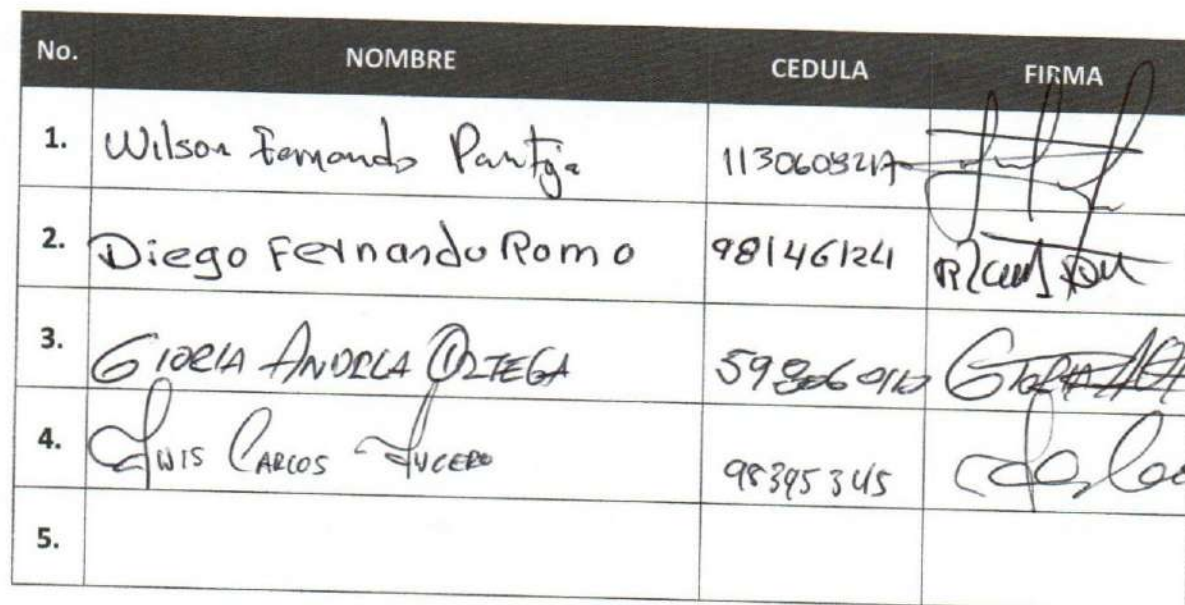 No. NOMBRE CEDULA FIRMA
1. Wilson Fernando Pantoja
2. Diego Fernando Romo 98146124
3. GLORIA ANDREA ORTEGA
4. LUIS CARLOS LUCERO 98395345
5.